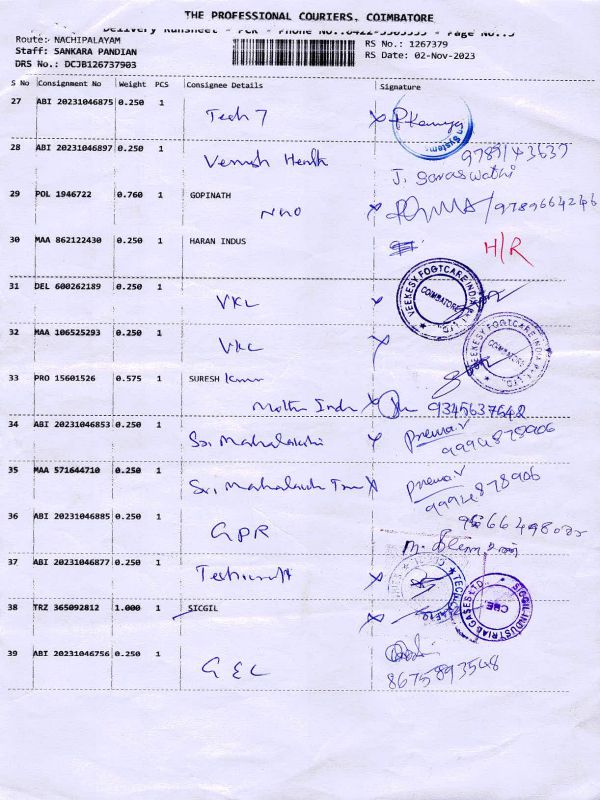 THE PROFESSIONAL COURIERS, COIMBATORE
Delivery Runsheet - PCR - Phone No.:0422-
Page No.:3
Route: NACHIPALAYAM
RS No.: 1267379
Staff: SANKARA PANDIAN
RS Date: 02-Nov-2023
DRS No.: DCJB126737903
S No Consignment No Weight PCS Consignee Details Signature
27 ABI 20231046875 0.250 1 Tech 7
28 ABI 20231046897 0.250 1
9789143637
J. Saraswathi
29 POL 1946722 0.760 1 GOPINATH
9789664246
30 MAA 862122430 0.250 1 HARAN INDUS H/R
31 DEL 600262189 0.250 1 VKC
VEEKESY FOOTCARE INDIA PVT LTD. COIMBATORE
32 MAA 106525293 0.250 1 VKC
VEEKESY FOOTCARE INDIA PVT LTD. COIMBATORE
33 PRO 15601526 0.575 1 SURESH Kumar
9345637642
34 ABI 20231046853 0.250 1 Sri Mahalakshi Prema.V
9994878906
35 MAA 571644710 0.250 1 Prema.V
9994878906
36 ABI 20231046885 0.250 1 GPR
37 ABI 20231046877 0.250 1 Techcraft
38 TRZ 365092812 1.000 1 SICGIL
SICGIL INDUSTRIAL GASES LTD. CBE
39 ABI 20231046756 0.250 1 GEC
8675893548